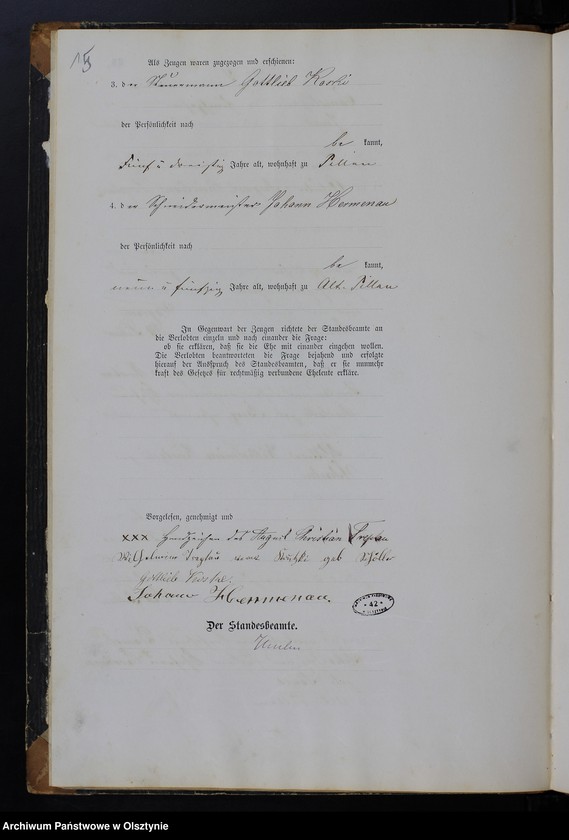 15
Als Zeugen waren zugezogen und erschienen:
3. der Steuermann Gottlieb
der Persönlichkeit nach
be kannt,
Fünf u dreißig Jahre alt, wohnhaft zu Pillau
4. der Schneidermeister Johann Hermenau
der Persönlichkeit nach
be kannt,
neun u fünfzig Jahre alt, wohnhaft zu Alt-Pillau
In Gegenwart der Zeugen richtete der Standesbeamte an
die Verlobten einzeln und nach einander die Frage:
ob sie erklären, daß sie die Ehe mit einander eingehen wollen.
Die Verlobten beantworteten die Frage bejahend und erfolgte
hierauf der Ausspruch des Standesbeamten, daß er sie nunmehr
kraft des Gesetzes für rechtmäßig verbundene Eheleute erkläre.
Vorgelesen, genehmigt und
xxx Handzeichen des August Christian
Wilhelmine geb
Gottlieb
Johann Hermenau.
42
Der Standesbeamte.
Archiwum Państwowe w Olsztynie